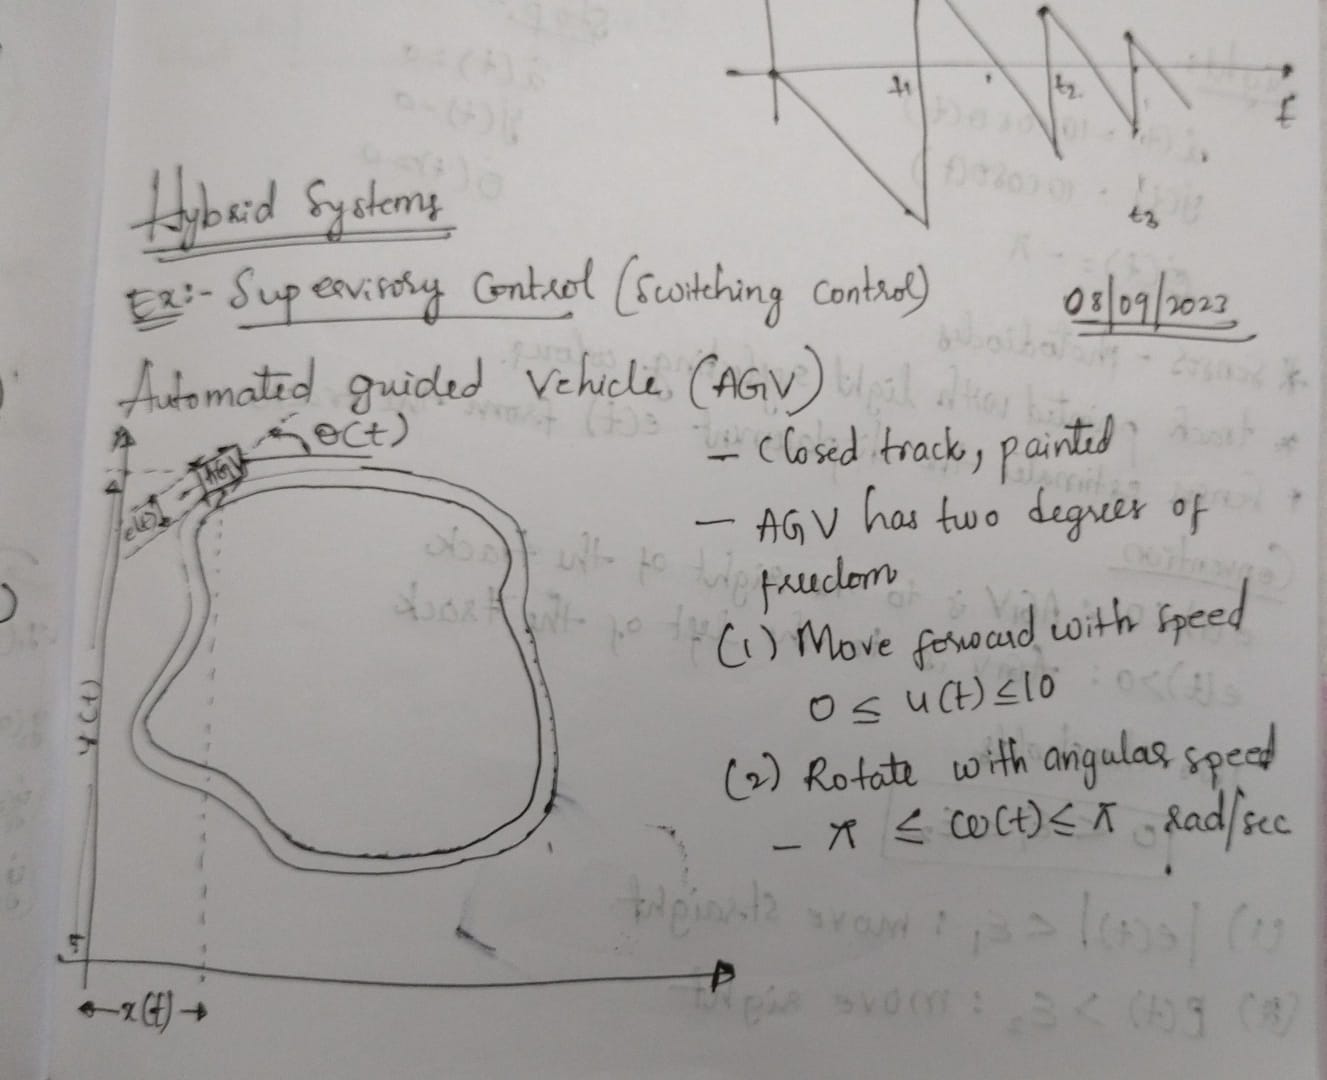 t1
t2
t
t3
Hybrid Systems
Ex:- Supervisory Control (Switching control)
08/09/2023
Automated guided Vehicle (AGV)
θ(t)
AGV
e(t)
y(t)
x(t)
- Closed track, painted
- AGV has two degrees of
freedom
(1) Move forward with speed
0 ≤ u(t) ≤ 10
(2) Rotate with angular speed
- π ≤ ω(t) ≤ π rad/sec